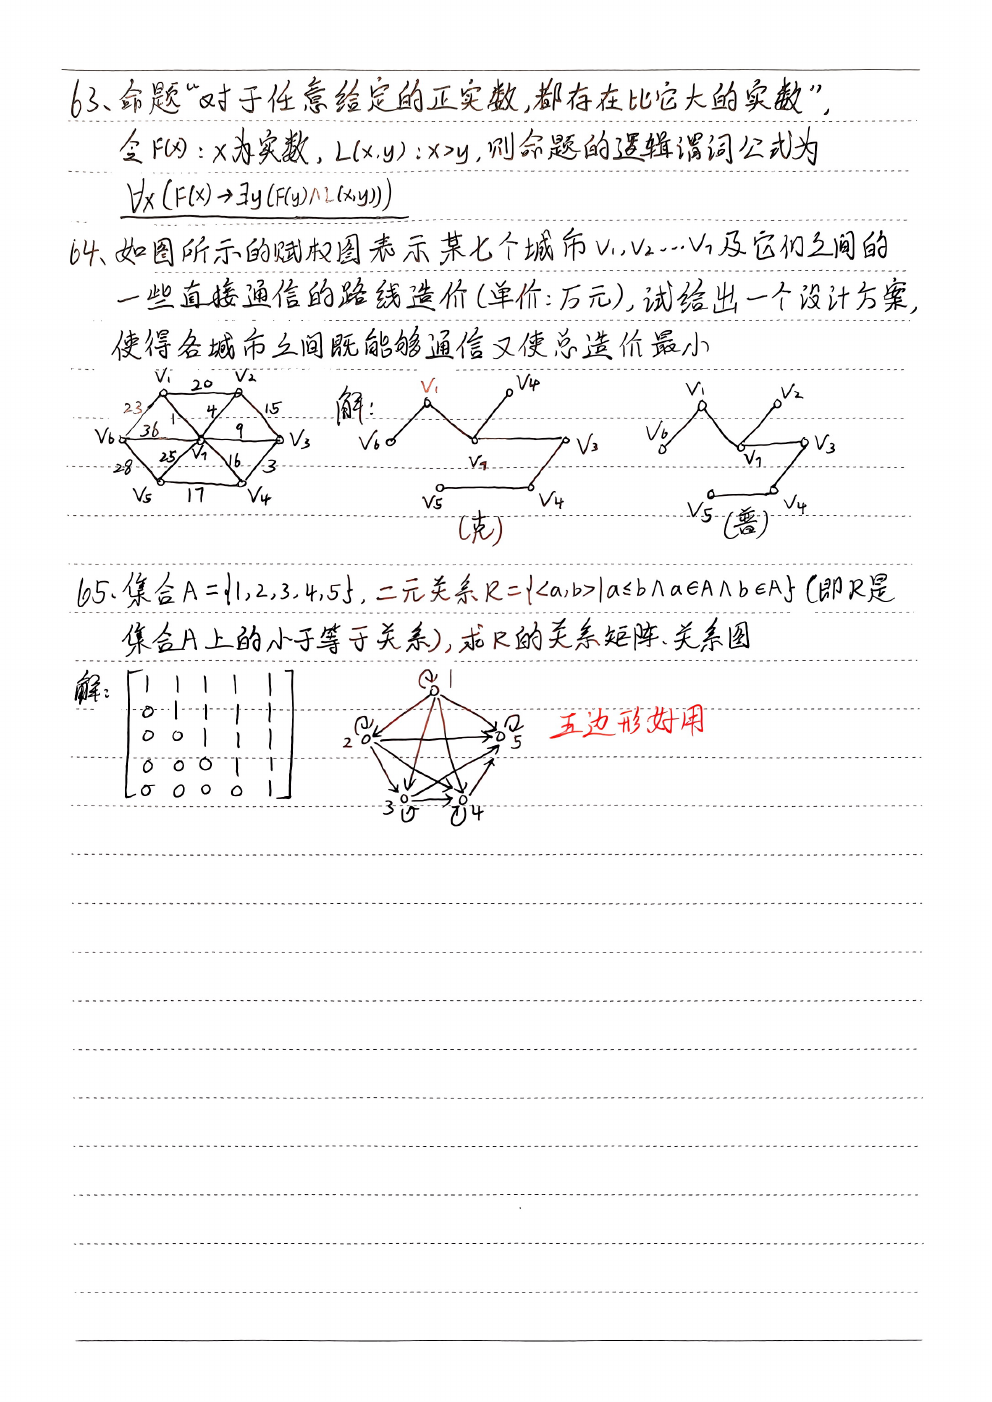 63、命题“对于任意给定的正实数,都存在比它大的实数”,
令F(x):x为实数,L(x,y):x>y,则命题的逻辑谓词公式为
∀x(F(x)→∃y(F(y)∧L(x,y)))
64、如图所示的赋权图表示某七个城市V₁,V₂…V₇及它们之间的
一些直接通信的路线造价(单价:万元),试给出一个设计方案,
使得各城市之间既能够通信又使总造价最小
V₁ 20 V₂
23 1 4 15
V₆ 36 V₇ 9 V₃
28 25 16 3
V₅ 17 V₄
解:
V₁ V₄
V₆ V₇ V₃
V₅ V₄
(克)
V₁ V₂
V₆ V₇ V₃
V₅ V₄
(普)
65、集合A={1,2,3,4,5},二元关系R={<a,b>|a≤b∧a∈A∧b∈A}(即R是
集合A上的小于等于关系),求R的关系矩阵、关系图
解:
1 1 1 1 1
0 1 1 1 1
0 0 1 1 1
0 0 0 1 1
0 0 0 0 1
1
2 5
3 4
五边形好用